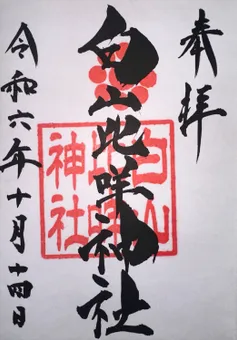 奉拝
白山比咩神社
令和六年十月十四日
白山比咩神社